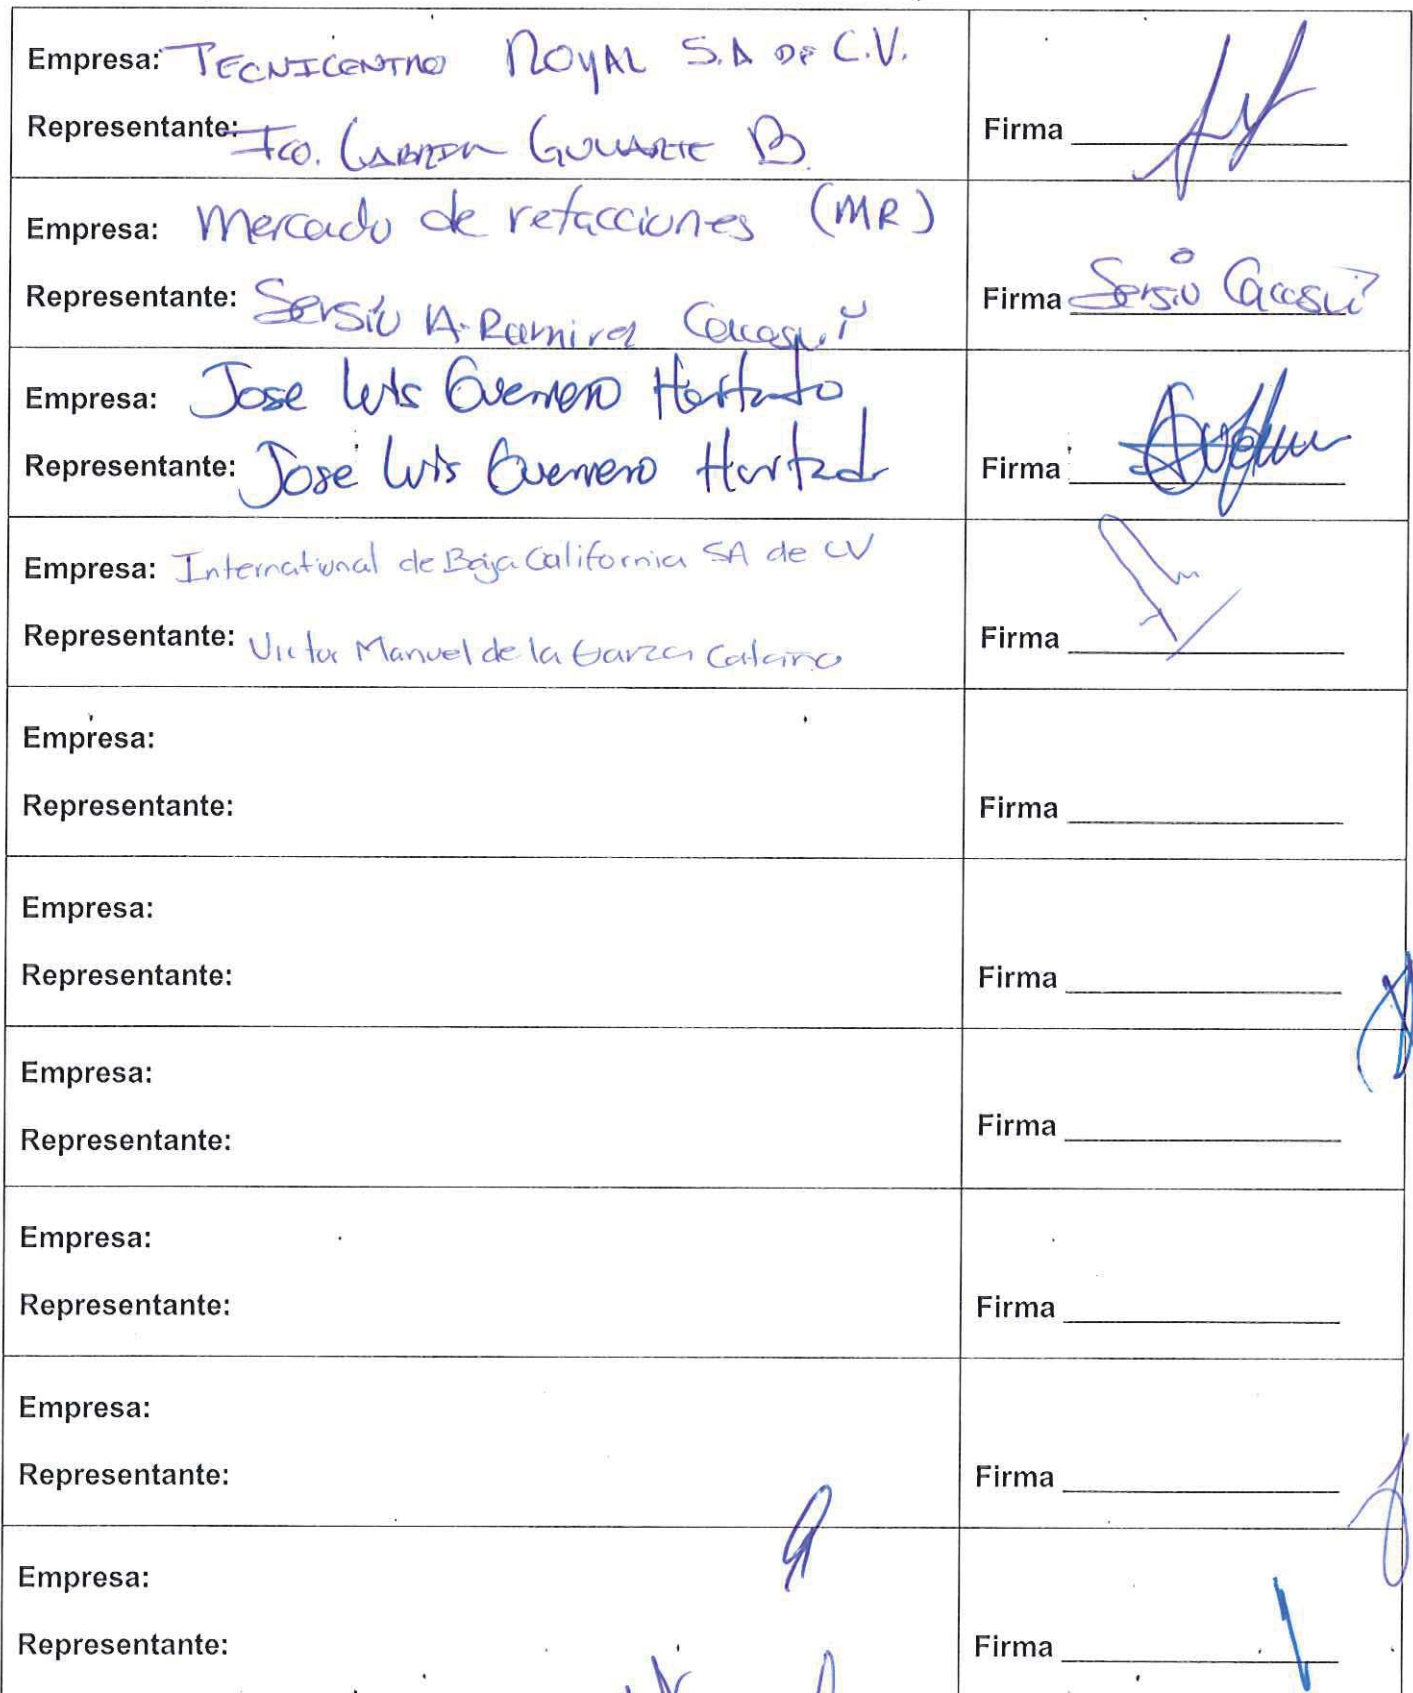 Empresa: TECNICENTRO ROYAL S.A DE C.V.
Representante: Fco. GABRIEL GUUARTE B.
Firma
Empresa: Mercado de refacciones (MR)
Representante: Sergio A. Ramirez Cacasui
Firma Sergio Cacasui
Empresa: Jose Luis Guerrero Hurtado
Representante: José Luis Guerrero Hurtado
Firma
Empresa: International de Baja California SA de CV
Representante: Victor Manuel de la Garza
Firma
Empresa:
Representante:
Firma
Empresa:
Representante:
Firma
Empresa:
Representante:
Firma
Empresa:
Representante:
Firma
Empresa:
Representante:
Firma
Empresa:
Representante:
Firma